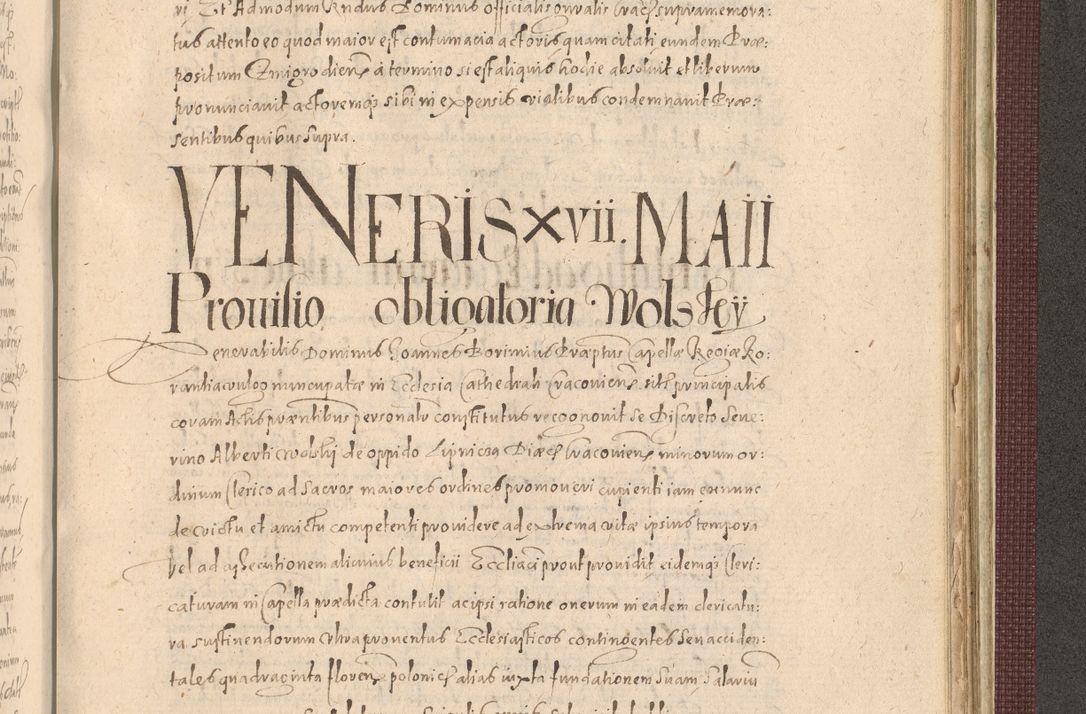 ri Et Admodum Rndus Dominus officialis gnralis Crac supramemora:
tus attento eo quod maior est contumacia actoris quam citati eundem Præ:
positum Zmigrodiens a termino si est aliquis hodie absoluit et liberum
pronunciauit actoremqs sibi in expensis vialibus condemnauit Præ:
sentibus quibus supra.
VENERIS xvii. MAII
Prouisio obligatoria Wolskÿ
Venerabilis Dominus Joannes Borimius Præptus Capellæ Regiæ Ro:
rantiar vulgo nuncupatæ in Ecclesia Cathedrali Cracouiens siti principalis
coram Actis præntibus personalr constitutus recognouit se Discreto Seue:
rino Alberti Wolskij de oppido Lipnicza Diæcs Cracouiens minorum or:
dinium Clerico ad sacros maiores ordines promoueri cupienti iam ex nunc
de victu et amictu competenti prouidere ad extrema vitæ ipsius tempora
vel ad assecutionem alicuius beneficii Eccliaci prout prouidit eidemqs Cleri:
caturam in Capella prædicta contulit ac ipsi ratione onerum in eadem clericatu:
ra sustinendorum vltra prouentus Ecclesiasticos contingentes seu acciden:
tales quadraginta florens polonics alias iuxta fundationem suam salariu